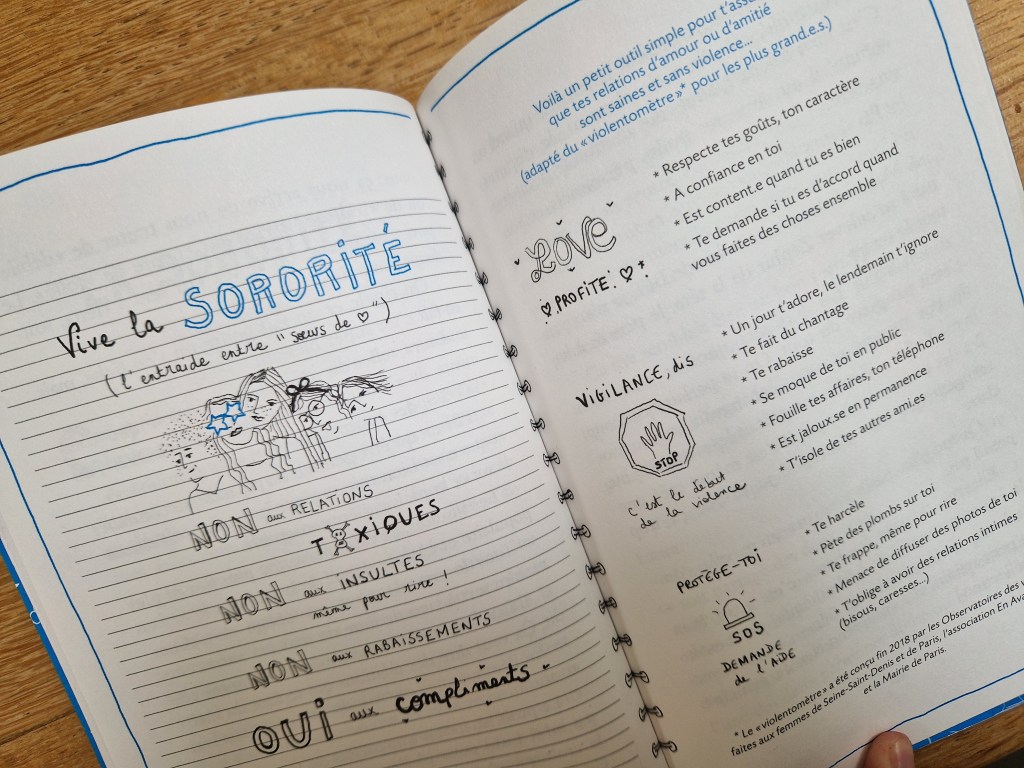 Vive la SORORITÉ
(l'entraide entre "sœurs de ♡")
NON aux RELATIONS
TOXIQUES
NON aux INSULTES
même pour rire !
NON aux RABAISSEMENTS
OUI aux compliments
Voilà un petit outil simple pour
que tes relations d'amour ou d'amitié
sont saines et sans violence...
(adapté du « violentomètre »* pour les plus grand.e.s.)
LOVE
♡ PROFITE! ♡
* Respecte tes goûts, ton caractère
* A confiance en toi
* Est content.e quand tu es bien
* Te demande si tu es d'accord quand
vous faites des choses ensemble
VIGILANCE, dis
STOP
c'est le début
de la violence
* Un jour t'adore, le lendemain t'ignore
* Te fait du chantage
* Te rabaisse
* Se moque de toi en public
* Fouille tes affaires, ton téléphone
* Est jaloux.se en permanence
* T'isole de tes autres ami.es
PROTÈGE-TOI
SOS
DEMANDE
de l'AIDE
* Te harcèle
* Pète des plombs sur toi
* Te frappe, même pour rire
* Menace de diffuser des photos de toi
* T'oblige à avoir des relations intimes
(bisous, caresses...)
* Le « violentomètre » a été conçu fin 2018 par les Observatoires des
faites aux femmes de Seine-Saint-Denis et de Paris, l'association En
et la Mairie de Paris.